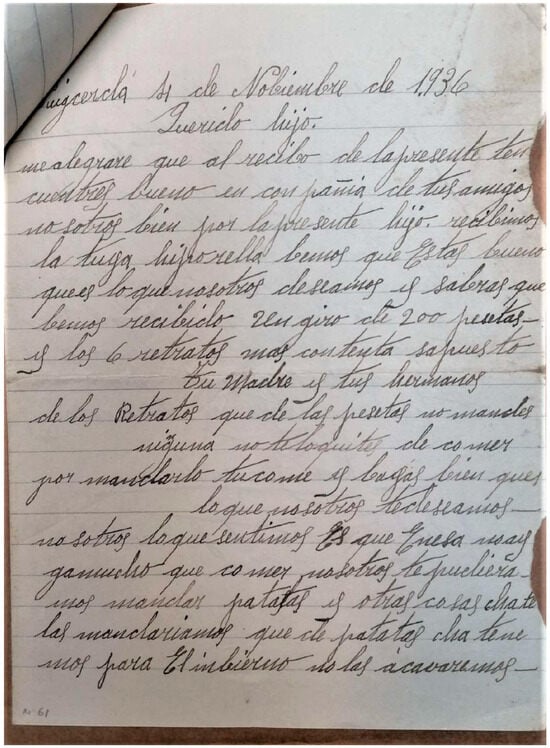 uigcerdá 4 de Nobiembre de 1936
Querido hijo.
me alegrare que al recibo de lapresente ten
cuentres bueno en conpañia de tus amigos
no sotros bien por lapresente hijo. recibimos
la tuya hiporella bemos que Estas bueno
ques lo que nosotros deseamos y sabras que
hemos recibido un giro de 200 pesetas
y los 6 retratos mas contenta sapuesto
tu Madre y tus hermanos
de los Retratos que de las pesetas no mandes
niguna no teloquites de comer
por mandarlo tu come y bayas bien ques
lo que nosotros tedeseamos
nosotros loque sentimos Es que Enesa no ay
gamucho que comer nosotros te pudiera
mos mandar patatas y otras cosas chate
las mandariamos que de patatas cha tene
mos para El inbierno no las acavaremos
No 61